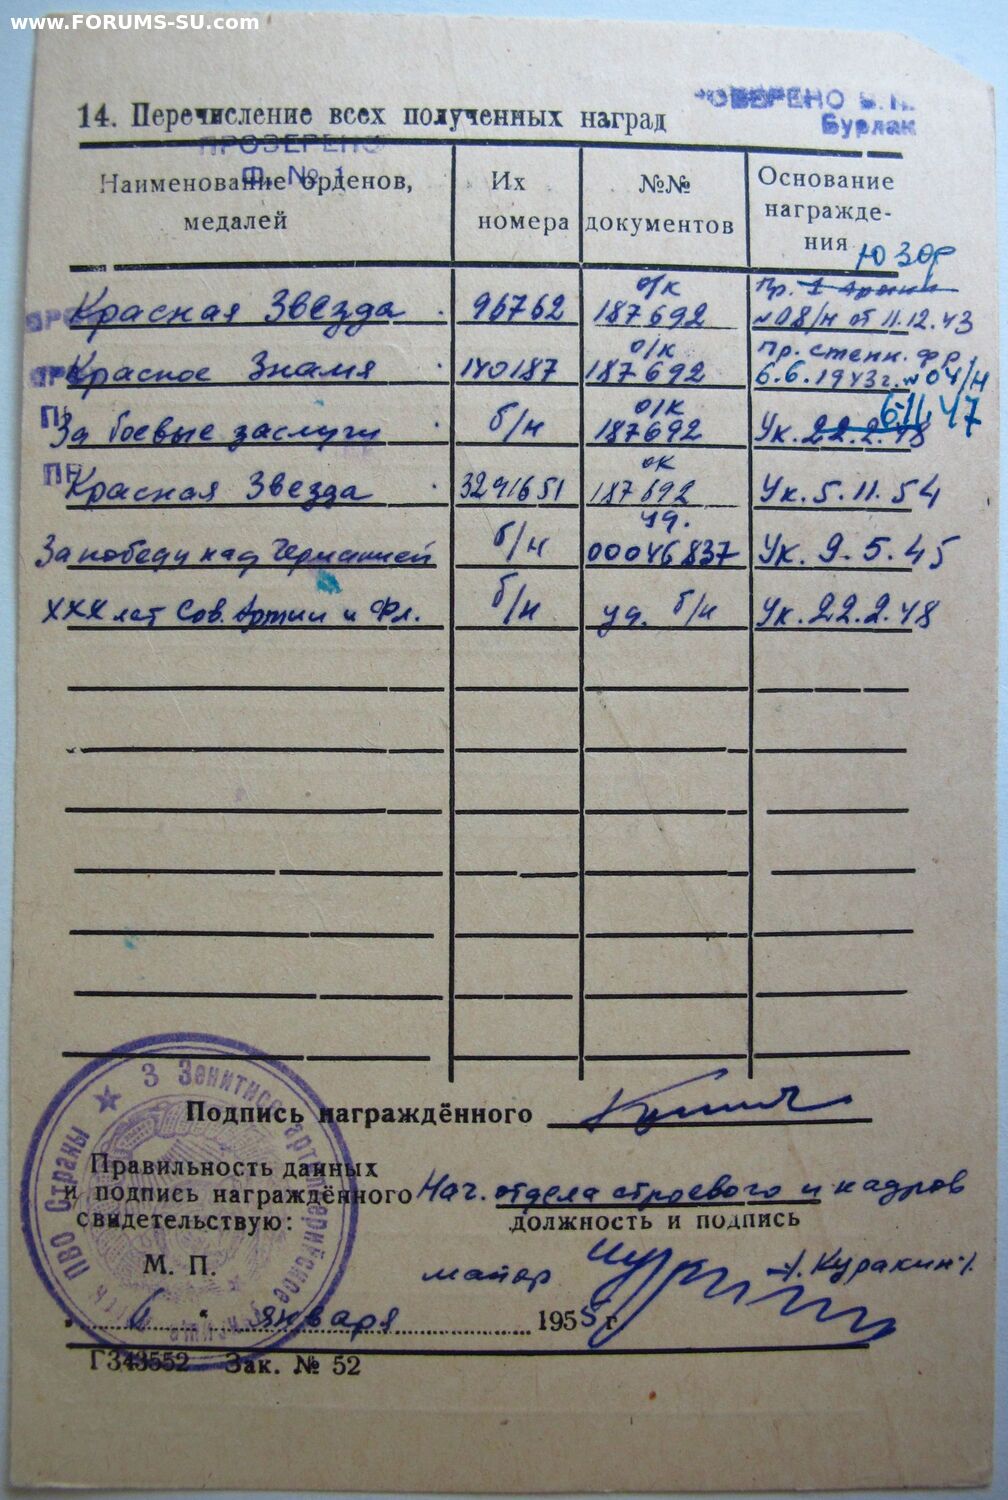 www.FORUMS-SU.com
ОВЕРЕНО
Бурлак
14. Перечисление всех полученных наград
ПРОЗЕРЕНО
Ф. № 1
Наименование орденов, медалей
Их номера
№№ документов
Основание награжде-
ния
ЮЗФ
Красная Звезда 96762 о/к 187692 Пр. 1 Армии №08/н от 11.12.43
Красное Знамя 140187 о/к 187692 Пр. степн. фр. 6.6.1943г. №04/н
За боевые заслуги б/н о/к 187692 Ук. 22.2.48 6-11 47
Красная Звезда 3291651 ок 187692 Ук. 5.11.54
За победу над Германией б/н уд. 00046837 Ук. 9.5.45
XXX лет Сов. Армии и Фл. б/н уд. б/н Ук. 22.2.48
Подпись награждённого
Правильность данных
и подпись награждённого
свидетельствую:
Нач. отдела строевого и кадров
должность и подпись
М. П.
майор /Куракин/
„ 6 “ января 1955 г.
Г343552 Зак. № 52
3 Зенитное артиллерийское
ПВО Страны